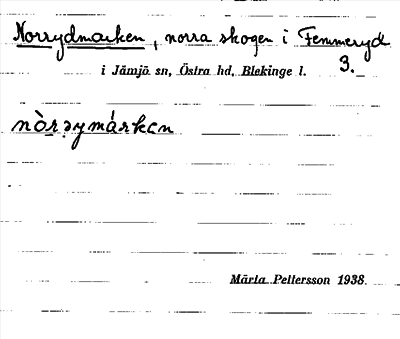 Norrydmarken, norra skogen i Femmeryd
3.
i Jämjö sn, Östra hd, Blekinge l.
nòrəymárkɛn
Märta Pettersson 1938.